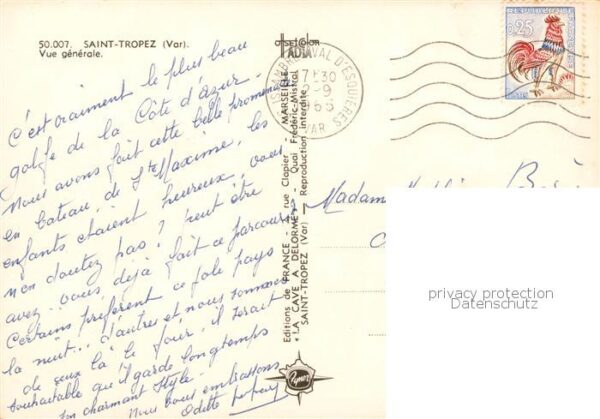 50.007. SAINT-TROPEZ (Var).
Vue générale.
C'est vraiment le plus beau
golfe de la Côte d'Azur.
Nous avons fait cette belle promenade
en bateau, de Ste Maxime, les
enfants étaient heureux, vous
n'en doutez pas ? peut être
avez-vous déjà fait ce parcours
Certains préfèrent ce joli pays
la nuit... d'autres et nous sommes
de ceux là le jour, il serait
souhaitable qu'il garde longtemps
son charmant style.
Nous vous embrassons
Odette
Editions de FRANCE - rue Clapier - MARSEILLE
« LA CAVE A DELORME » - Quai Frédéric-Mistral
SAINT-TROPEZ (Var) - Reproduction interdite
VAL D'ESQUIERES
VAR
0,25
Madame
privacy protection
Datenschutz